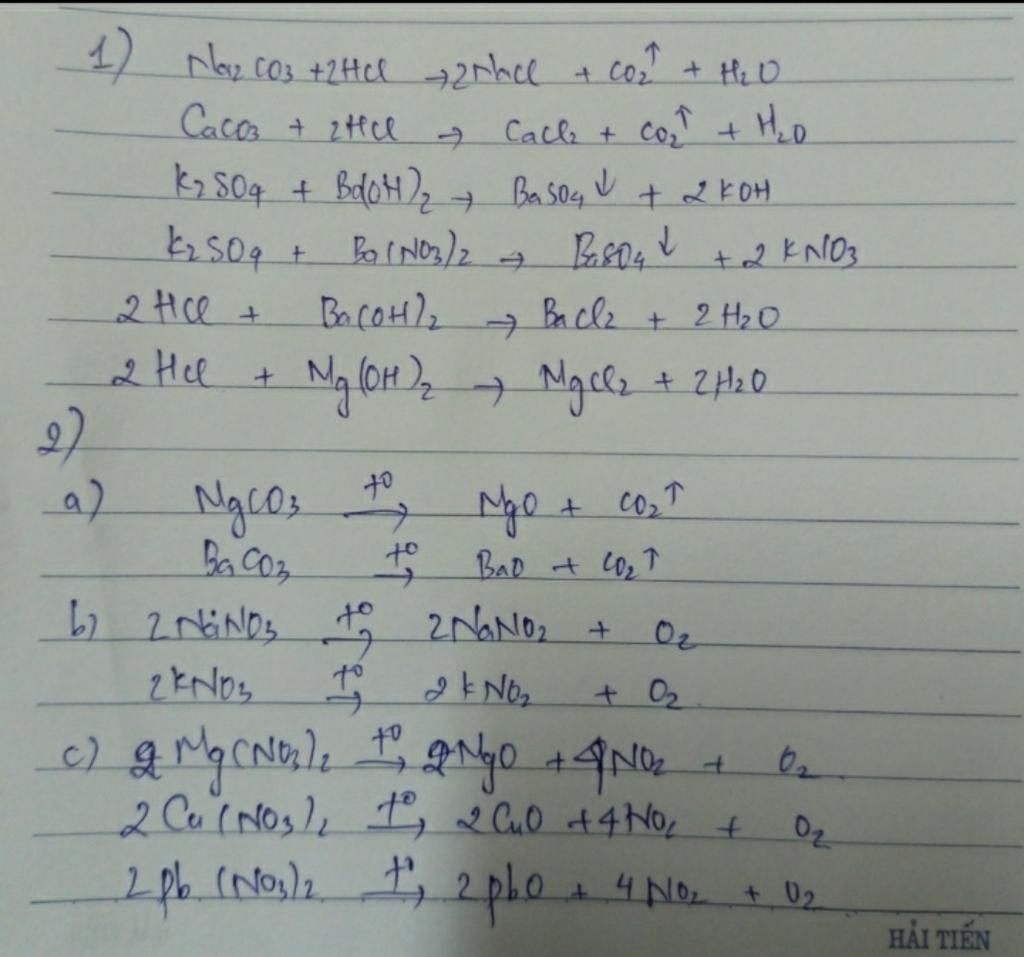 1) Na2CO3 + 2HCl → 2NaCl + CO2↑ + H2O
CaCO3 + 2HCl → CaCl2 + CO2↑ + H2O
K2SO4 + Ba(OH)2 → BaSO4↓ + 2KOH
K2SO4 + Ba(NO3)2 → BaSO4↓ + 2KNO3
2HCl + Ba(OH)2 → BaCl2 + 2H2O
2HCl + Mg(OH)2 → MgCl2 + 2H2O
2)
a) MgCO3 →(t°) MgO + CO2↑
BaCO3 →(t°) BaO + CO2↑
b) 2NaNO3 →(t°) 2NaNO2 + O2
2KNO3 →(t°) 2KNO2 + O2
c) 2Mg(NO3)2 →(t°) 2MgO + 4NO2 + O2
2Cu(NO3)2 →(t°) 2CuO + 4NO2 + O2
2Pb(NO3)2 →(t°) 2PbO + 4NO2 + O2
HẢI TIẾN